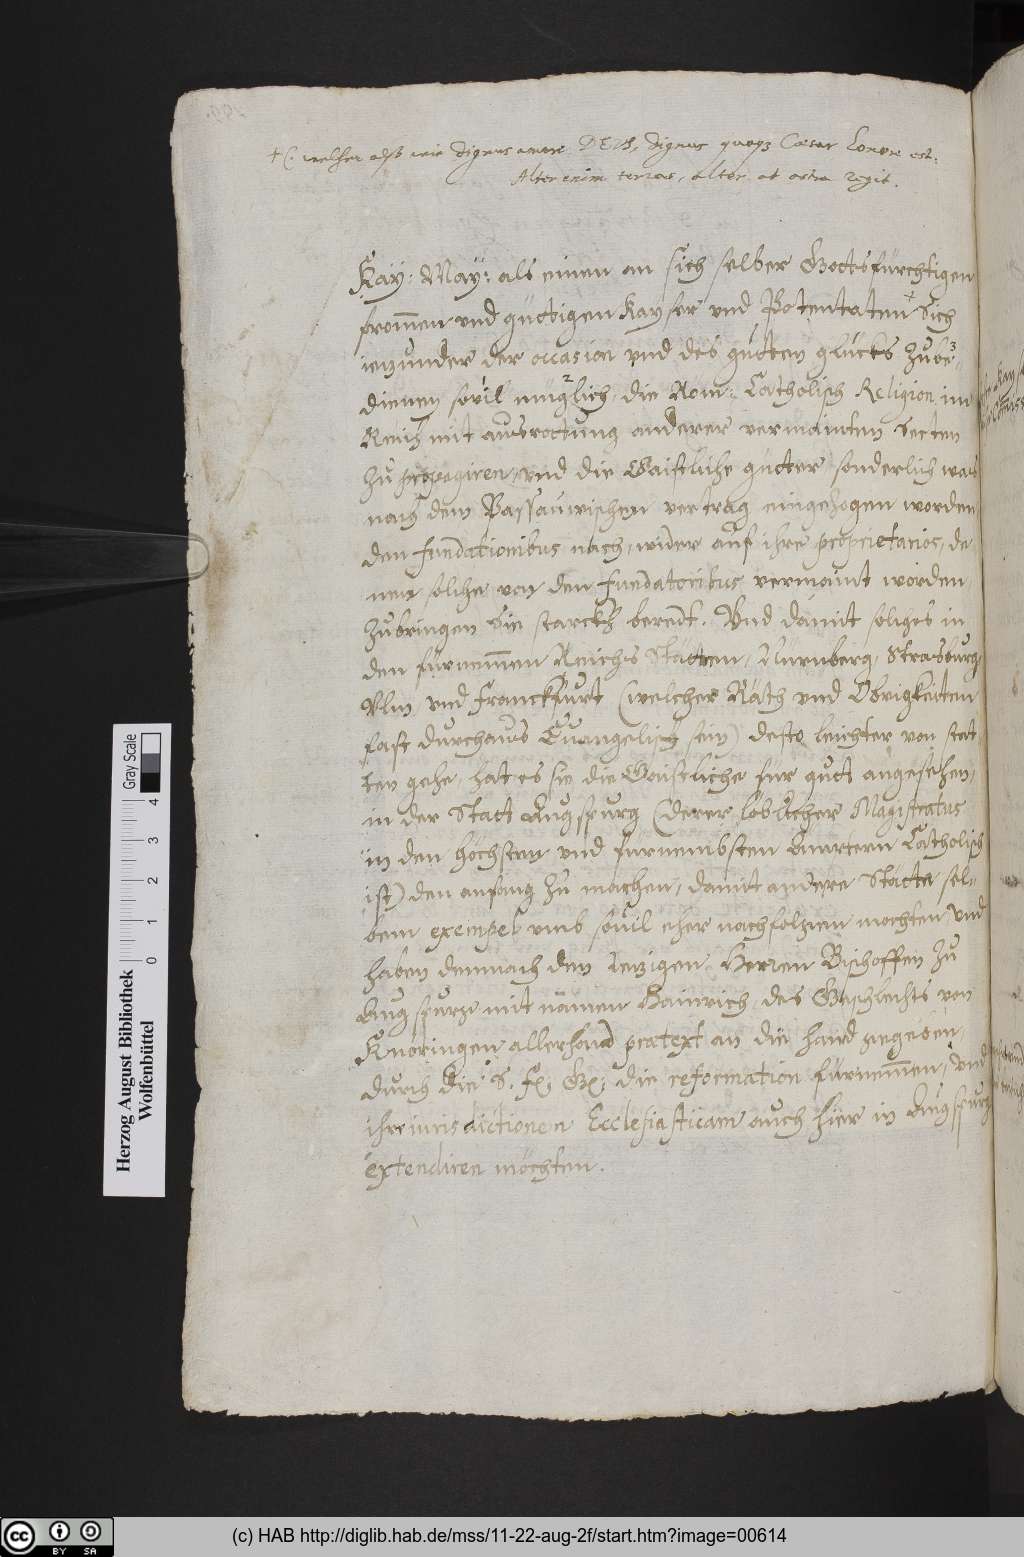 + (. welcher alß wie dignus amore DEUS, dignus quoqz Cæsar honore est:
Alter enim terras, alter at astra regit.
Kay: May: als einen an sich selber Gottsfürchtigen
frommen und güttigen Kayser und Potentaten + Sich
ietzunder der occasion und des gutten glücks zube-
dienen sovil müglich, die Rom: Catholisch Religion im
Reich mit ausrottung anderer vermainten Secten
zu propagiren, und die Gaistliche gütter sonderlich was
nach dem Passauwischen vertrag eingezogen worden
den fundationibus nach, wider auf ihre proprietarios, de-
nen solche von den fundatoribus vermaint worden,
zubringen Sie starckh beredt. Und damit solches in
den fürnemmen Reichs Stätten, Nürnberg, Strasburg,
Ulm, und Franckfurt (welcher Räth und Obrigkeiten
fast durchaus Evangelisch sein) desto leichter von stat-
ten gehe, hat es sie die Gaistliche für gutt angesehen,
in der Statt Augspurg (derer löblicher Magistratus
in den höchsten und fürnembsten Embtern Catholisch
ist) den anfang zu machen, damit andere Stätte sel-
bem exempel umb sovil eher nachfolgen mochten, Und
haben demnach den ietzigen Herren Bischoffen zu
Augspurg mit namen Hainrich, des Geschlechts von
Knöringen allerhand prætext an die hand gegeben,
durch die S. Fr. Gn. die reformation fürnemmen, und
ihre iurisdictionem Ecclesiasticam auch hier in Augspurg
extendiren möchten.
Herzog August Bibliothek
Wolfenbüttel
0 1 2 3 4
Gray Scale
cc BY SA
(c) HAB http://diglib.hab.de/mss/11-22-aug-2f/start.htm?image=00614